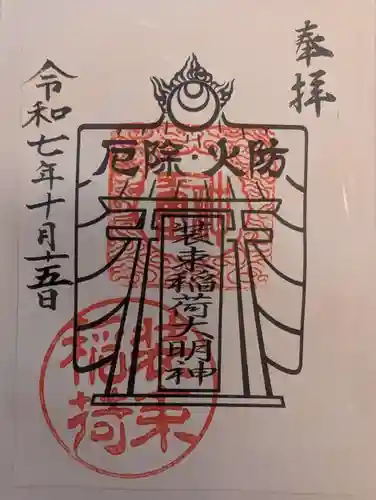 奉拝
厄除・火防
装束稲荷大明神
令和七年十月十五日
装束
稲荷